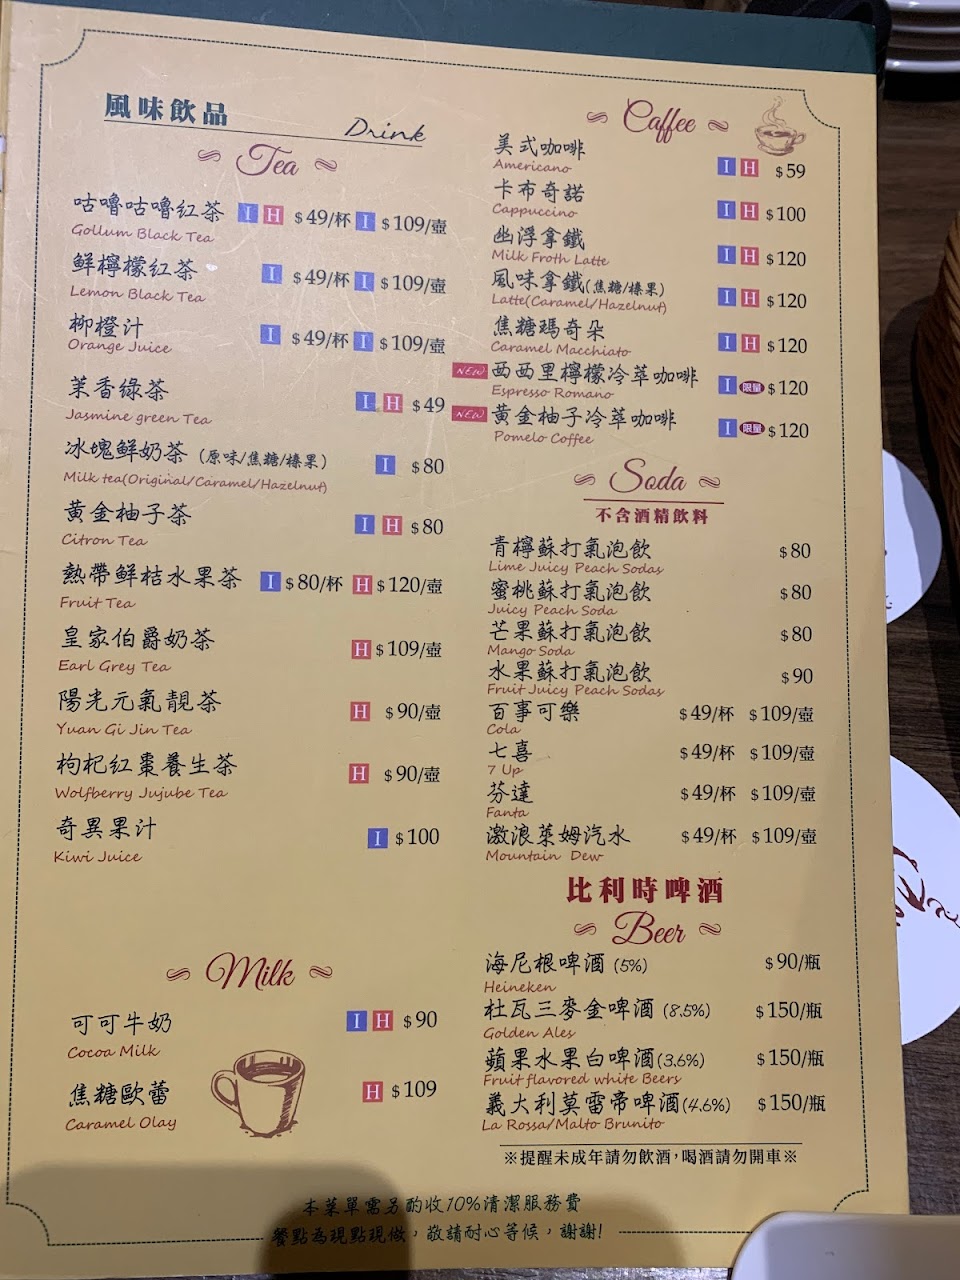 風味飲品
Drink
Tea
咕嚕咕嚕紅茶 I H $49/杯 I $109/壺
Gollum Black Tea
鮮檸檬紅茶 I $49/杯 I $109/壺
Lemon Black Tea
柳橙汁 I $49/杯 I $109/壺
Orange Juice
茉香綠茶 I H $49
Jasmine green Tea
冰塊鮮奶茶 (原味/焦糖/榛果) I $80
Milk tea(Original/Caramel/Hazelnut)
黃金柚子茶 I H $80
Citron Tea
熱帶鮮桔水果茶 I $80/杯 H $120/壺
Fruit Tea
皇家伯爵奶茶 H $109/壺
Earl Grey Tea
陽光元氣靚茶 H $90/壺
Yuan Gi Jin Tea
枸杞紅棗養生茶 H $90/壺
Wolfberry Jujube Tea
奇異果汁 I $100
Kiwi Juice
Milk
可可牛奶 I H $90
Cocoa Milk
焦糖歐蕾 H $109
Caramel Olay
Caffee
美式咖啡 I H $59
Americano
卡布奇諾 I H $100
Cappuccino
幽浮拿鐵 I H $120
Milk Froth Latte
風味拿鐵(焦糖/榛果) I H $120
Latte(Caramel/Hazelnut)
焦糖瑪奇朵 I H $120
Caramel Macchiato
NEW 西西里檸檬冷萃咖啡 I 限量 $120
Espresso Romano
NEW 黃金柚子冷萃咖啡 I 限量 $120
Pomelo Coffee
Soda
不含酒精飲料
青檸蘇打氣泡飲 $80
Lime Juicy Peach Sodas
蜜桃蘇打氣泡飲 $80
Juicy Peach Soda
芒果蘇打氣泡飲 $80
Mango Soda
水果蘇打氣泡飲 $90
Fruit Juicy Peach Sodas
百事可樂 $49/杯 $109/壺
Cola
七喜 $49/杯 $109/壺
7 Up
芬達 $49/杯 $109/壺
Fanta
激浪萊姆汽水 $49/杯 $109/壺
Mountain Dew
比利時啤酒
Beer
海尼根啤酒 (5%) $90/瓶
Heineken
杜瓦三麥金啤酒 (8.5%) $150/瓶
Golden Ales
蘋果水果白啤酒(3.6%) $150/瓶
Fruit flavored white Beers
義大利莫雷帝啤酒(4.6%) $150/瓶
La Rossa/Malto Brunito
※提醒未成年請勿飲酒，喝酒請勿開車※
本菜單需另酌收10%清潔服務費
餐點為現點現做，敬請耐心等候，謝謝!